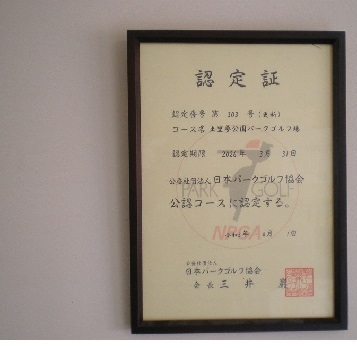 認定証
認定番号 第 303 号(更新)
コース名 夢公園パークゴルフ場
認定期限 2026年 3月 31日
公益社団法人日本パークゴルフ協会
PARK GOLF
公認コースに認定する。
NPGA
月 1日
公益社団法人
日本パークゴルフ協会
会長 三井